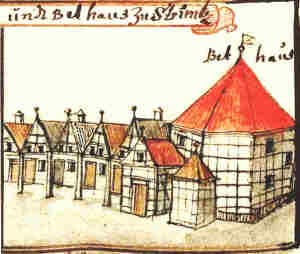 und Bethaus zu Strimb
Bet haus